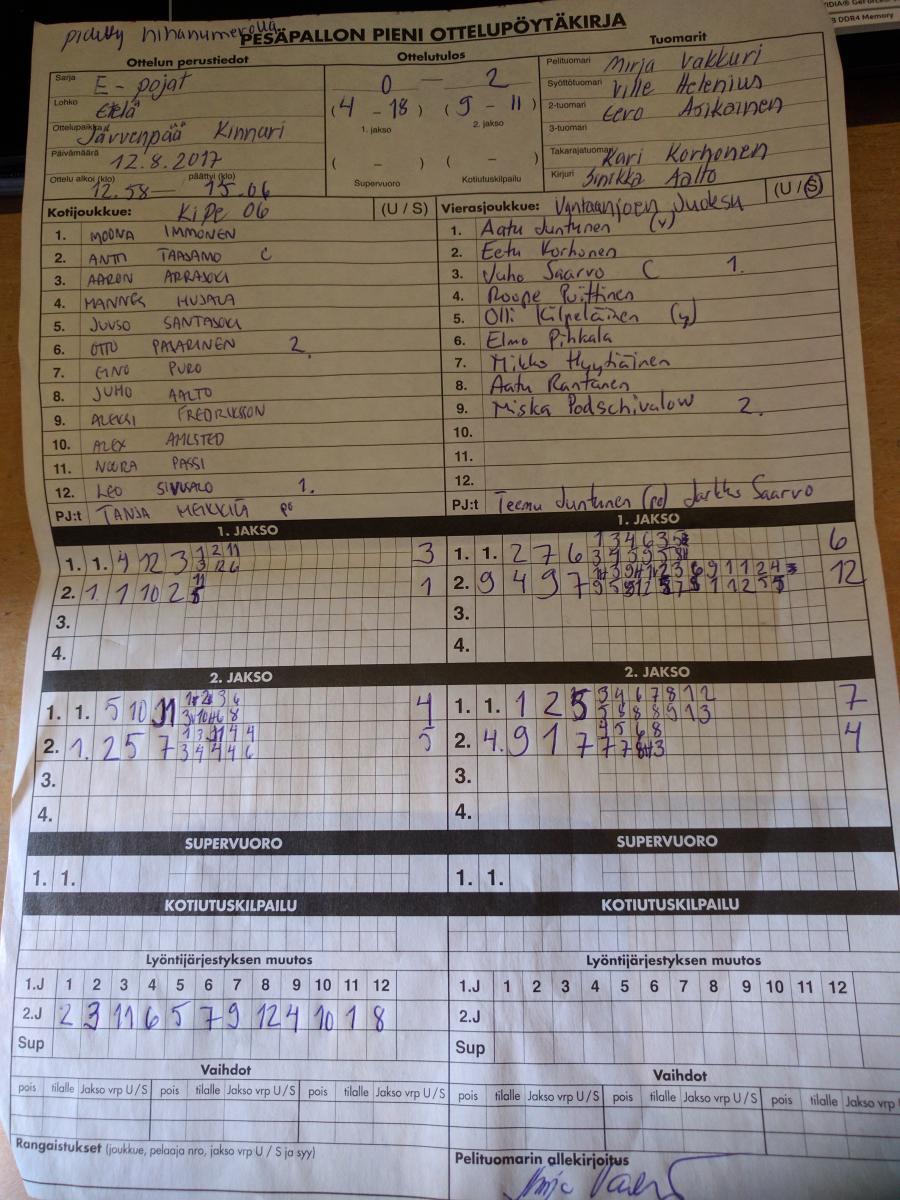 pidetty hihanumerolla
PESÄPALLON PIENI OTTELUPÖYTÄKIRJA
Ottelun perustiedot
Sarja E - pojat
Lohko Etelä
Ottelupaikka Järvenpää Kinnari
Päivämäärä 12.8.2017
Ottelu alkoi (klo) päättyi (klo)
12.58 — 15.06
Ottelutulos
0 — 2
(4 - 18) (9 - 11)
1. jakso 2. jakso
( - ) ( - )
Supervuoro Kotiutuskilpailu
Tuomarit
Pelituomari Mirja Vakkuri
Syöttötuomari Ville Helenius
2-tuomari Eero Asikainen
3-tuomari
Takarajatuomari Kari Korhonen
Kirjuri Sinikka Aalto
Kotijoukkue: KiPe 06 (U / S)
1. MOONA IMMONEN
2. ANTTI TAASAMO C
3. AARON ARRAJOKI
4. HANNES HUJALA
5. JUUSO SANTAJOKI
6. OTTO PAJARINEN 2.
7. EINO PURO
8. JUHO AALTO
9. ALEKSI FREDRIKSSON
10. ALEX AHLSTED
11. NOORA PASSI
12. LEO 1.
PJ:t TANJA HEIKKILÄ po
Vierasjoukkue: Vantaanjoen Juoksu (U / S)
1. Aatu Juntunen (v)
2. Eetu Korhonen
3. Juho Saarvo C 1.
4. Roope Puittinen
5. Olli Kilpeläinen (y)
6. Elmo Pihkala
7. Mikko Hyytiäinen
8. Aatu Rantanen
9. Miska Podschivalow 2.
10.
11.
12.
PJ:t Teemu Juntunen (po) Jarkko Saarvo
1. JAKSO
1. 1. 4 12 3 3
2. 1 1 10 2 1
3.
4.
1. JAKSO
1. 1. 2 7 6 6
2. 9 4 9 7 12
3.
4.
2. JAKSO
1. 1. 5 10 11 4
2. 1. 2 5 7 5
3.
4.
2. JAKSO
1. 1. 1 2 5 7
2. 4. 9 1 7 4
3.
4.
SUPERVUORO
1. 1.
SUPERVUORO
1. 1.
KOTIUTUSKILPAILU
KOTIUTUSKILPAILU
Lyöntijärjestyksen muutos
1.J 1 2 3 4 5 6 7 8 9 10 11 12
2.J 2 3 11 6 5 7 9 12 4 10 1 8
Sup
Lyöntijärjestyksen muutos
1.J 1 2 3 4 5 6 7 8 9 10 11 12
2.J
Sup
Vaihdot
pois tilalle Jakso vrp U / S pois tilalle Jakso vrp U / S pois tilalle Jakso vrp U / S
Vaihdot
pois tilalle Jakso vrp U / S pois tilalle Jakso vrp U / S pois tilalle Jakso vrp U
Rangaistukset (joukkue, pelaaja nro, jakso vrp U / S ja syy)
Pelituomarin allekirjoitus